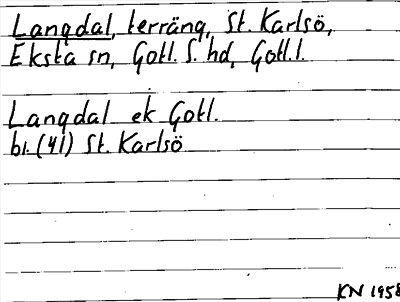 Langdal, terräng, St. Karlsö,
Eksta sn, Gotl. S. hd, Gotl.l.
Langdal ek Gotl.
bl. (41) St. Karlsö
KN 1958